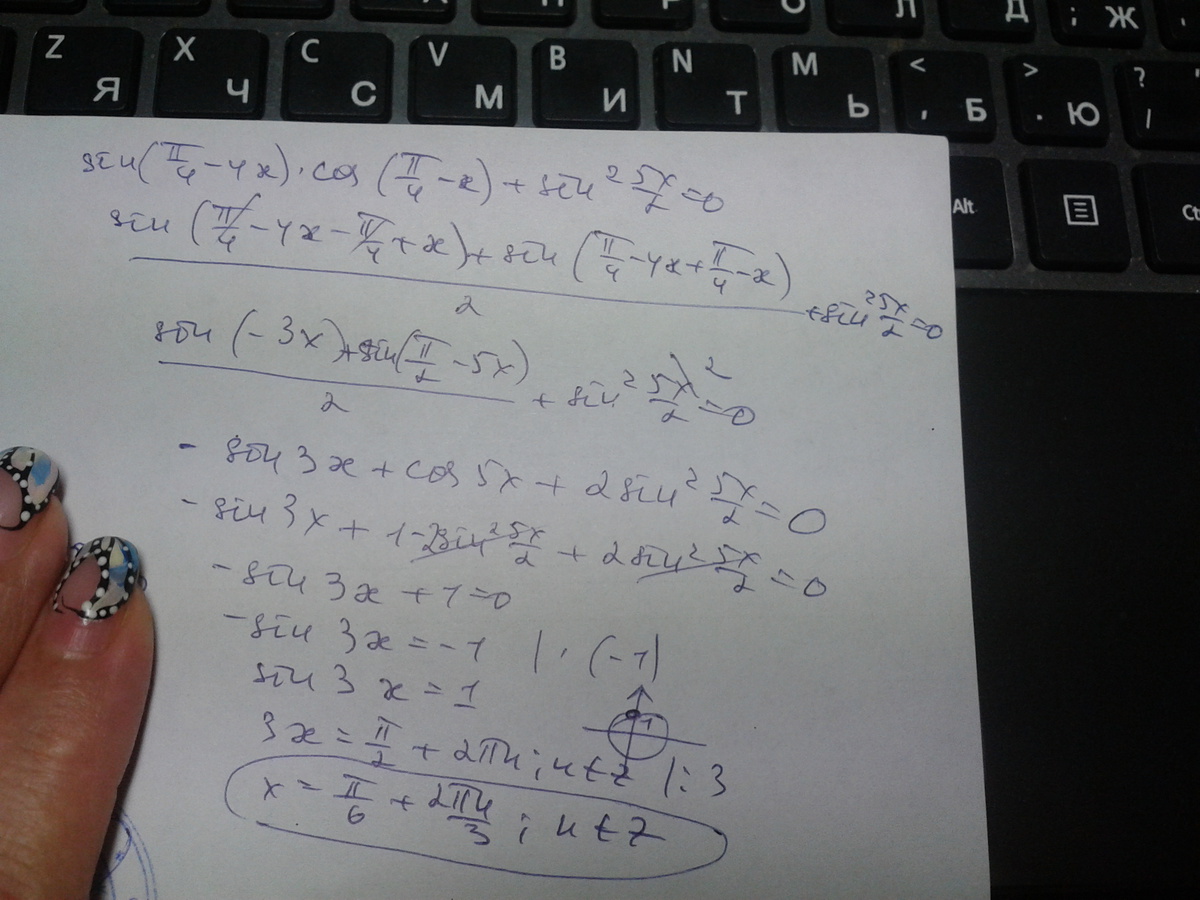 Z Я X Ч C С V М B И N Т M Ь < , Б > . Ю ? /
Л Д ; Ж
Alt
Ct
sin(π/4 - 4x) · cos(π/4 - x) + sin² 5x/2 = 0
(sin(π/4 - 4x - π/4 + x) + sin(π/4 - 4x + π/4 - x))/2 + sin² 5x/2 = 0
(sin(-3x) + sin(π/2 - 5x))/2 + sin² 5x/2 \2 = 0
- sin 3x + cos 5x + 2 sin² 5x/2 = 0
- sin 3x + 1 - 2sin² 5x/2 + 2 sin² 5x/2 = 0
- sin 3x + 1 = 0
- sin 3x = -1 | · (-1)
sin 3x = 1
1
3x = π/2 + 2πn ; n ∈ Z |: 3
x = π/6 + 2πn/3 ; n ∈ Z